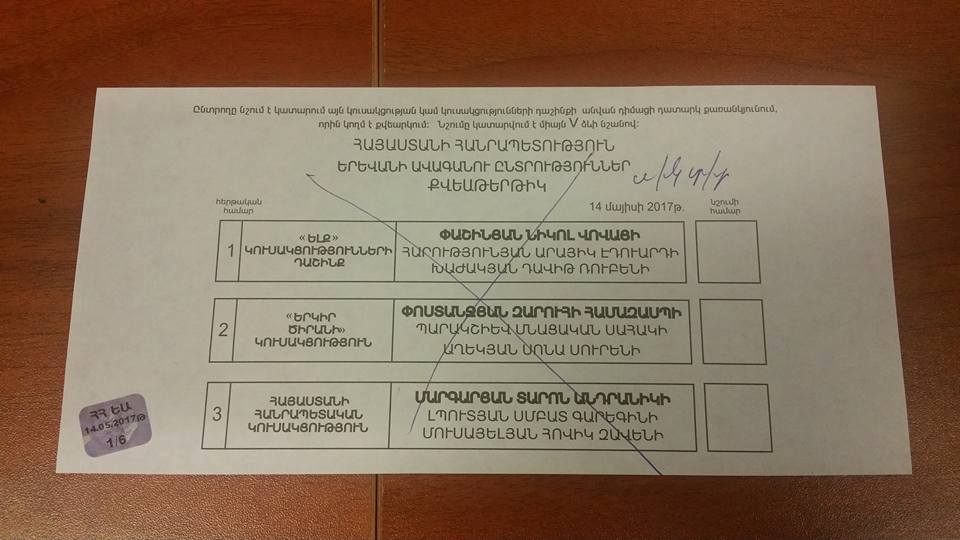 Ընտրողը նշում է կատարում այն կուսակցության կամ կուսակցությունների դաշինքի անվան դիմացի դատարկ քառանկյունում,
որին կողմ է քվեարկում: Նշումը կատարվում է միայն V ձևի նշանով:
ՀԱՅԱՍՏԱՆԻ ՀԱՆՐԱՊԵՏՈՒԹՅՈՒՆ
ԵՐԵՎԱՆԻ ԱՎԱԳԱՆՈՒ ԸՆՏՐՈՒԹՅՈՒՆՆԵՐ
ՔՎԵԱԹԵՐԹԻԿ
14 մայիսի 2017թ.
հերթական
համար
նշումի
համար
1
«ԵԼՔ»
ԿՈՒՍԱԿՑՈՒԹՅՈՒՆՆԵՐԻ
ԴԱՇԻՆՔ
ՓԱՇԻՆՅԱՆ ՆԻԿՈԼ ՎՈՎԱՅԻ
ՀԱՐՈՒԹՅՈՒՆՅԱՆ ԱՐԱՅԻԿ ԷԴՈՒԱՐԴԻ
ԽԱԺԱԿՅԱՆ ԴԱՎԻԹ ՌՈՒԲԵՆԻ
2
«ԵՐԿԻՐ
ԾԻՐԱՆԻ»
ԿՈՒՍԱԿՑՈՒԹՅՈՒՆ
ՓՈՍՏԱՆՋՅԱՆ ԶԱՐՈՒՀԻ ՀԱՄԱԶԱՍՊԻ
ՊԱՐԱԿՇԻԵՎ ՄՆԱՑԱԿԱՆ ՍԱՀԱԿԻ
ԱՂԵԿՅԱՆ ՍՈՆԱ ՍՈՒՐԵՆԻ
3
ՀԱՅԱՍՏԱՆԻ
ՀԱՆՐԱՊԵՏԱԿԱՆ
ԿՈՒՍԱԿՑՈՒԹՅՈՒՆ
ՄԱՐԳԱՐՅԱՆ ՏԱՐՈՆ ԱՆԴՐԱՆԻԿԻ
ԼՊՈՒՏՅԱՆ ՍՄԲԱՏ ԳԱՐԵԳԻՆԻ
ՄՈՒՍԱՅԵԼՅԱՆ ՀՈՎԻԿ ԶԱՎԵՆԻ
ՀՀ ԵԱ
14.05.2017թ
1/6